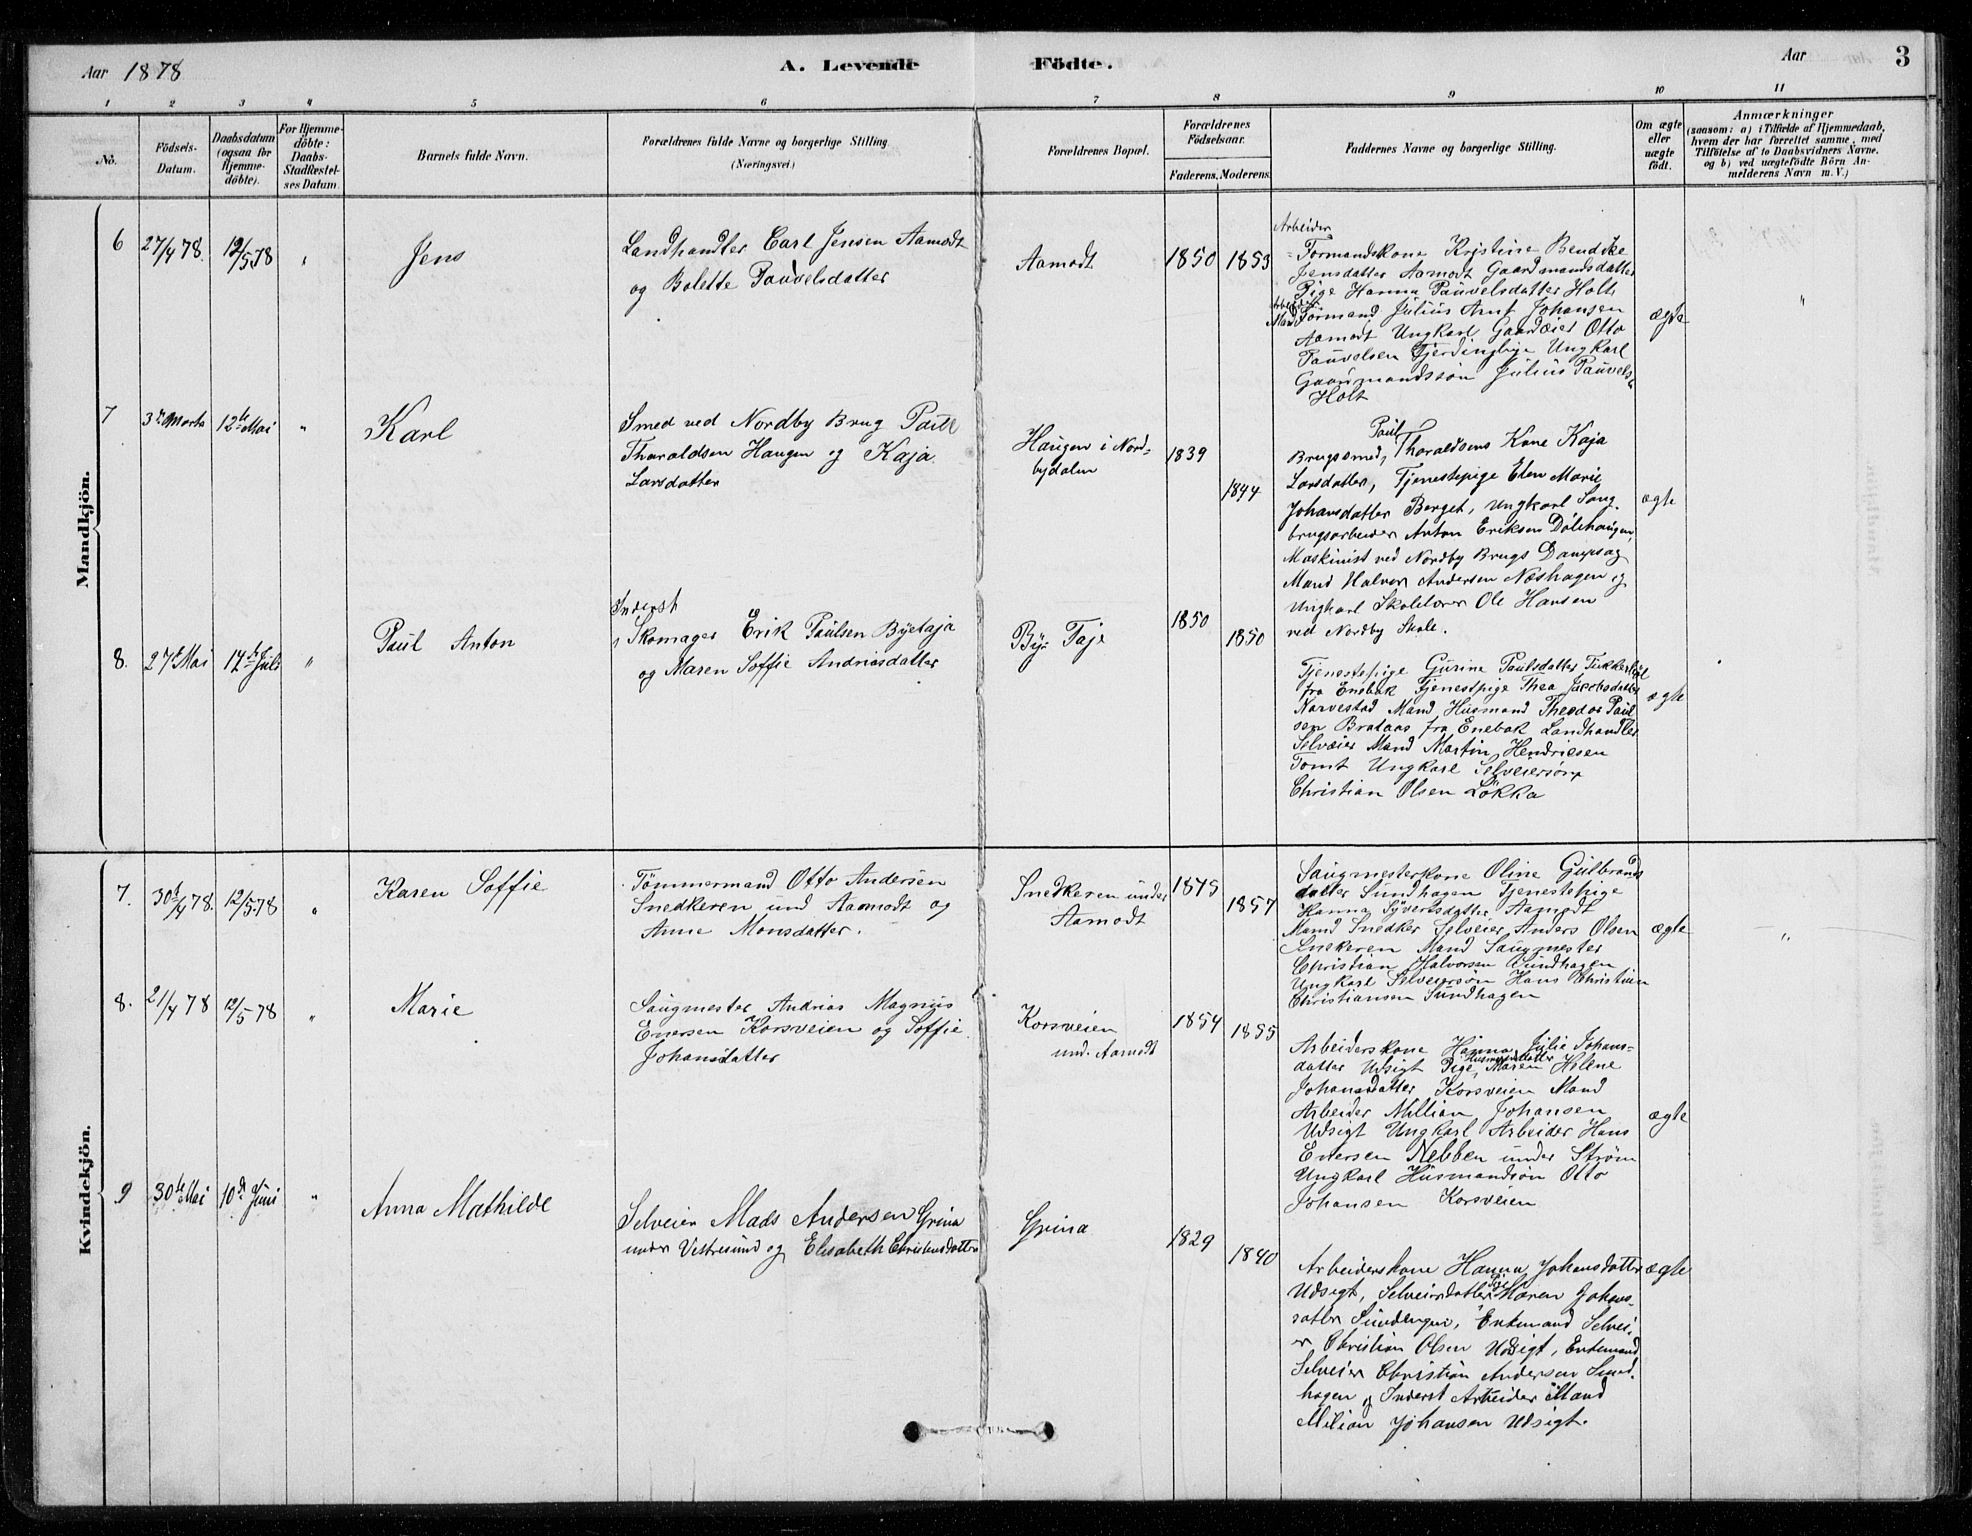 Aar 1878
A. Levende Födte.
Aar
3
1 2 3 4 5 6 7 8 9 10 11
No.
Födsels-Datum.
Daabsdatum (ogsaa for Hjemme-döbte).
For Hjemme-döbte: Daabs-Stadfæstel-ses Datum.
Barnets fulde Navn.
Forældrenes fulde Navne og borgerlige Stilling
(Næringsvei.)
Forældrenes Bopæl.
Forældrenes Födselsaar.
Faderens. Moderens.
Faddernes Navne og borgerlige Stilling.
Om ægte eller uægte födt.
Anmærkninger
(saasom: a) i Tilfælde af Hjemmedaab,
hvem der har forrettet samme, med
Tilföielse af to Daabsvidners Navne,
og b) ved uægtefödte Börn An-
melderens Navn m. V.)
Mandkjön.
6 27/4 78. 12/5 78 "
Jens
Landhandler Carl Jensen Aamodt
og Bolette Pauvelsdatter
Aamodt
1850 1853
Arbeider
-Formandskone Kristine Bendike
Jensdatter Aamodt Gaardmandsdatter
Pige Hanna Pauvelsdatter Holt
Arbeider
Mand Formand Julius Arnt Johansen
Aamodt Ungkarl Gaardeier Otto
Pauvelsen Fjerdingbye Ungkarl
Gaardmandssön Julius Pauvels.
Holt
ægte
"
7 3de Marts 12te Mai "
Karl
Smed ved Nordby Brug Paul
Tharaldsen Haugen og Kaja
Larsdatter
Haugen i Nord-
bydalen
1839
1844
Paul
Brugssmed, Tharaldsens Kone Kaja
Larsdatter, Tjenestepige Elen Marie
Johansdatter Berget, Ungkarl Saug.
brugsarbeider Anton Eriksen Dölehaugen,
Maskinist ved Nordby Brugs Dampsag
Mand Halvor Andersen Næshagen og
Ungkarl Skolelærer Ole Hansen
ved Nordby Skole.
ægte
8. 27de Mai 14de Juli "
Paul Anton
Inderst
Skomager Erik Paulsen Byetaja
og Maren Soffie Andriasdatter
By- Taje
1850
1850
Tjenestepige Gurine Paulsdatter
fra Enebak Tjenestpige Thea Jacobsdatter
Narvestad Mand Husmand Theodor Paul
sen Brataas fra Enebak Landhandler
Selveier Mand Martin Hendriesen
Tomt Ungkarl Selveiersön
Christian Olsen Lökka
ægte
Kvindekjön.
7. 30/4 78. 12/5 78 "
Karen Soffie
Tömmermand Otto Andersen
Snedkeren und Aamodt og
Anne Monsdatter.
Snedkeren under
Aamodt
1857
Saugmesterkone Oline Gulbrands
datter Sundhagen Tjenestepige
Hanna Syvertsdatter Aamodt
Mand Snedker Selveier Anders Olsen
Snekeren Mand Saugmester
Christian Halvorsen Sundhagen
Ungkarl Selveiersön Hans Christian
Christiansen Sundhagen
ægte
"
8. 21/4 78 12/5 78 "
Marie
Saugmester Andrias Magnus
Enersen Korsveien og Soffie
Johansdatter
Korsveien
und. Aamodt
1854 1855
Arbeiderskone Hanna Julie Johans-
datter Udsigt Pige, Husmandsdatter Maren Helene
Johansdatter Korsveien Mand
Arbeider Millian Johansen
Udsigt Ungkarl Arbeider Hans
Enersen Nebben under Ström
Ungkarl Husmandsön Otto
Johansen Korsveien
ægte
9 30te Mai 10de Juni "
Anna Mathilde
Selveier Mads Andersen Grina
under Vestresund og Elisabeth Christensdatter
Grina
1829
1840
Arbeiderskone Hanna Johansdatter
Udsigt, Selveiersdatter Pige Maren Johans-
datter Sundengen, Enkemand Selvei-
er Christian Olsen Udsigt, Enkemand
Selveier Christian Andersen Sund.
hagen og Inderst Arbeider Mand
Milian Johansen Udsigt.
ægte